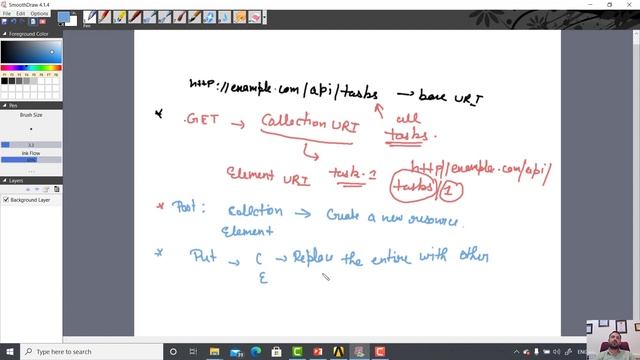 SmoothDraw 4.1.4
File Image Options
Foreground Color
Pen
Brush Size
3.3
Ink Flow
Layers
Background Layer
http://example.com/api/tasks → base URI
* .GET → Collection URI all tasks.
Element URI task.1 http//example.com/api/
tasks/1
* Post: Collection → Create a new resource.
Element
* Put → C → Replace the entire with other
E
ENG